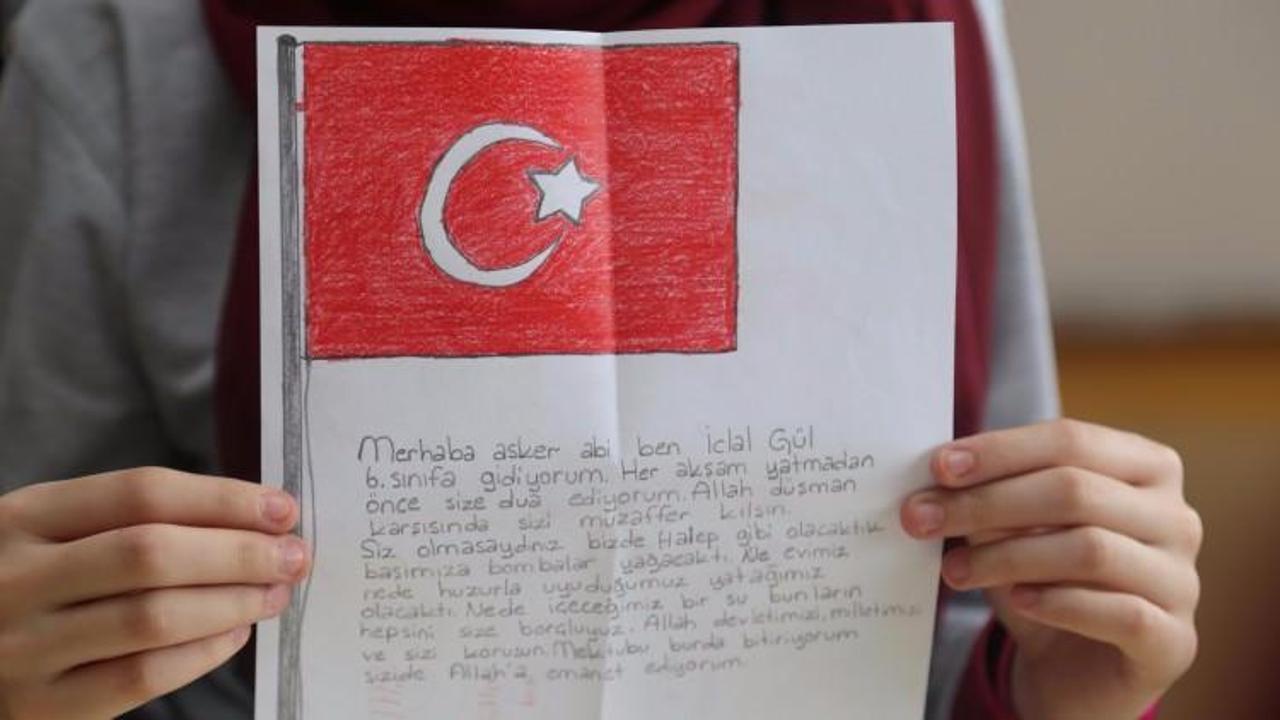 Merhaba asker abi ben İclal Gül
6. sınıfa gidiyorum. Her akşam yatmadan
önce size dua ediyorum. Allah düşman
karşısında sizi muzaffer kılsın.
Siz olmasaydınız bizde Halep gibi olacaktık
başımıza bombalar yağacaktı. Ne evimiz
nede huzurla uyuduğumuz yatağımız
olacaktı. Nede içeceğimiz bir su bunların
hepsini size borçluyuz. Allah devletimizi, milletimizi
ve sizi korusun. Mektubu burda bitiriyorum
sizide Allah'a emanet ediyorum.